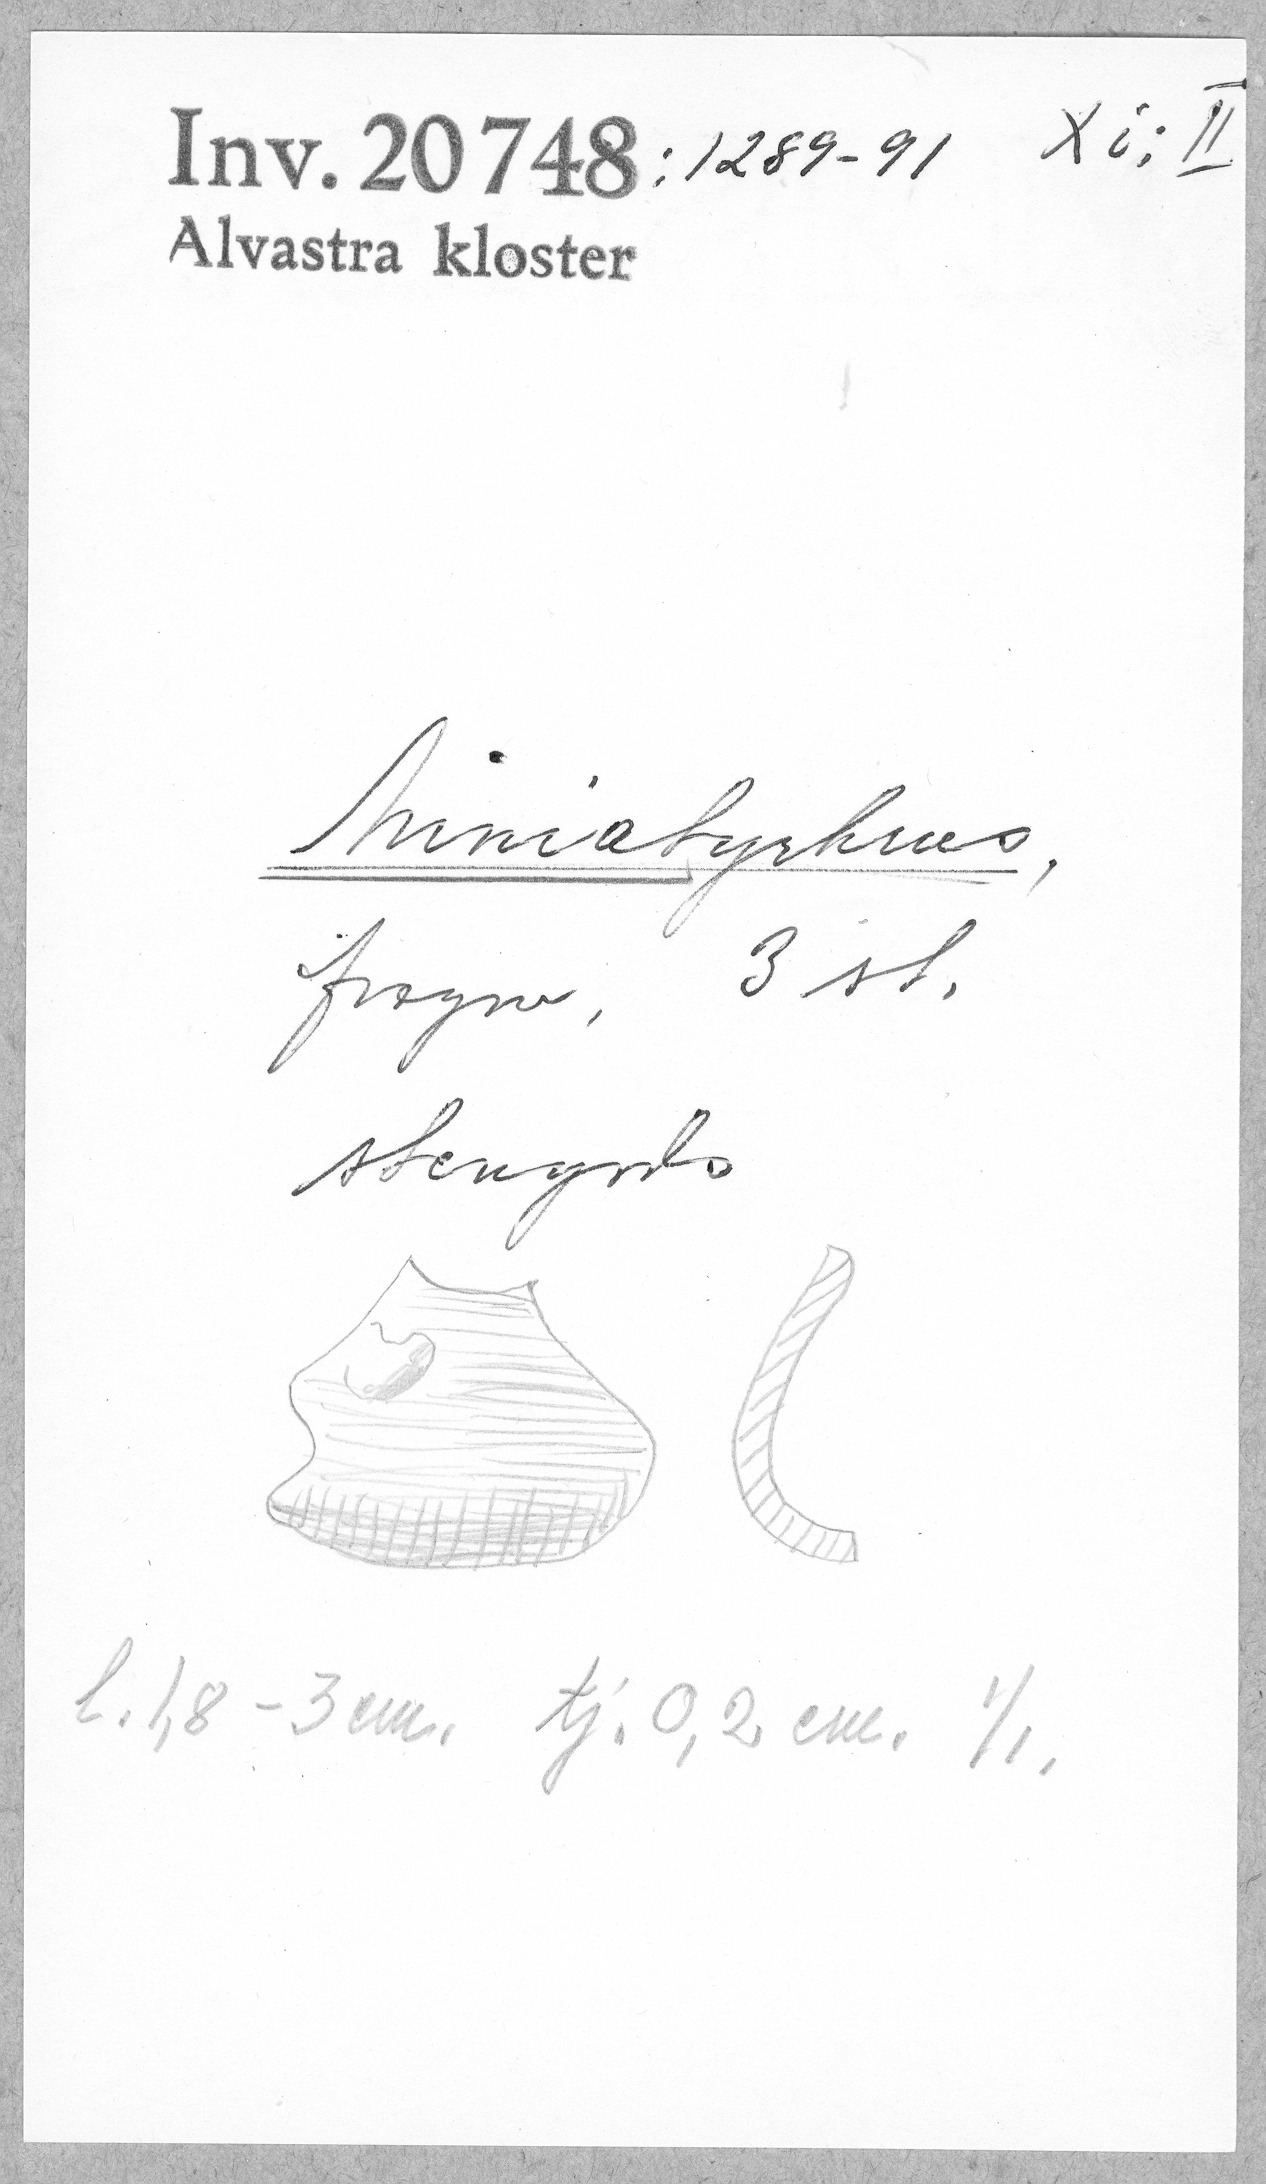 Inv. 20748:1289-91 Xi: II
Alvastra kloster
Miniatyrkrus,
fragm, 3 st.
stengods
l. 1,8 - 3 cm. tj. 0,2 cm. 1/1.